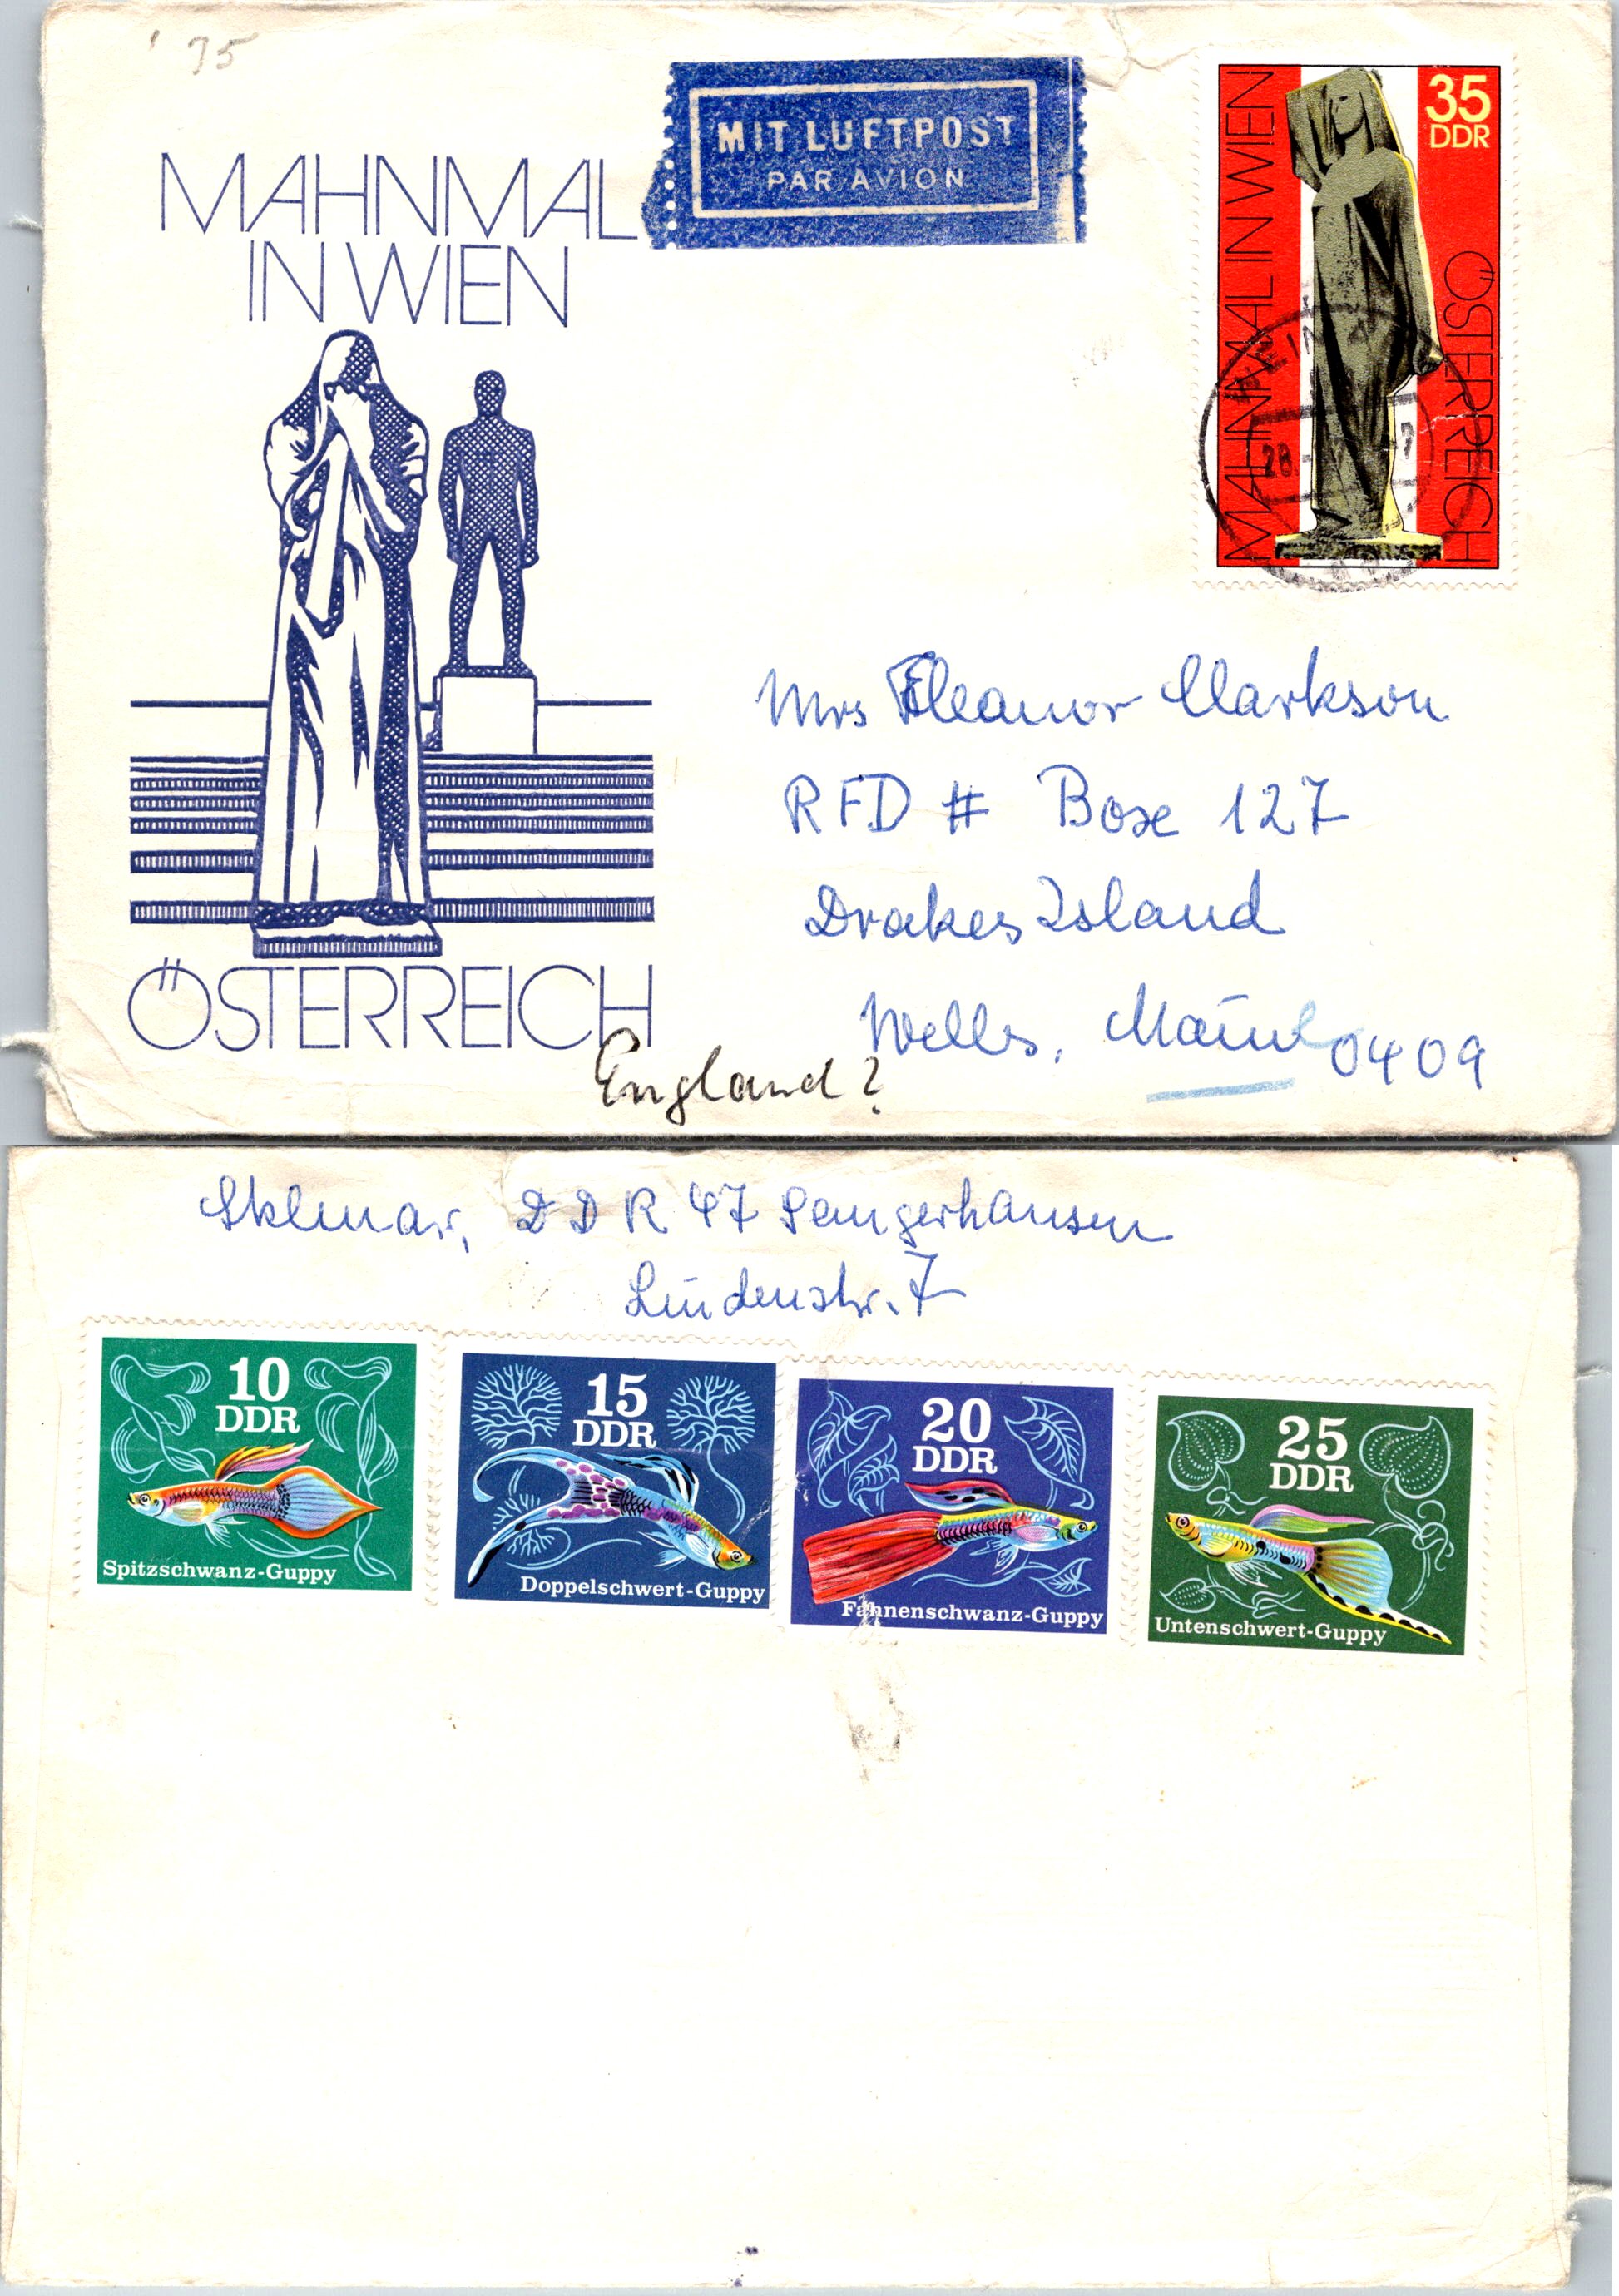 ' 75
MAHNMAL
IN WIEN
MIT LUFTPOST
PAR AVION
35
DDR
MAHNMAL IN WIEN
ÖSTERREICH
28
ÖSTERREICH
Mrs Eleanor Clarkson
RFD # Boxe 127
Drakes Island
Wells, Maine 0409
England?
DDR 47 Sangerhausen
Lindenstr. 7
10
DDR
Spitzschwanz-Guppy
15
DDR
Doppelschwert-Guppy
20
DDR
Fahnenschwanz-Guppy
25
DDR
Untenschwert-Guppy